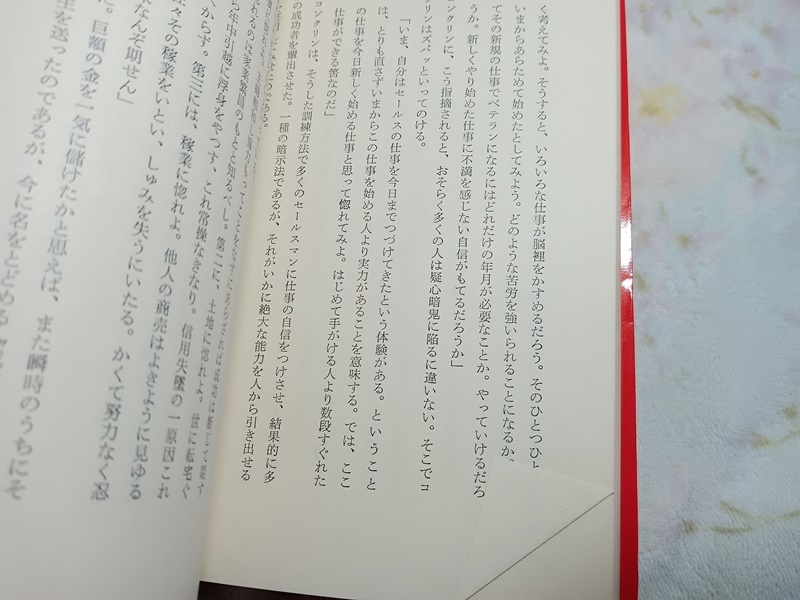 く考えてみよ。そうすると、いろいろな仕事が脳裡をかすめるだろう。そのひとつひと
いまからあらためて始めたとしてみよう。どのような苦労を強いられることになるか。
てその新規の仕事でベテランになるにはどれだけの年月が必要なことか。やっていけるだろ
うか。新しくやり始めた仕事に不満を感じない自信がもてるだろうか」
コンクリンに、こう指摘されると、おそらく多くの人は疑心暗鬼に陥るに違いない。そこでコ
クリンはズバッといってのける。
「いま、自分はセールスの仕事を今日までつづけてきたという体験がある。ということ
は、とりも直さずいまからこの仕事を始める人より実力があることを意味する。では、ここ
の仕事を今日新しく始める仕事と思って惚れてみよ。はじめて手がける人より数段すぐれた
仕事ができる筈なのだ」
コンクリンは、そうした訓練方法で多くのセールスマンに仕事の自信をつけさせ、結果的に多
の成功者を輩出させた。一種の暗示法であるが、それがいかに絶大な能力を人から引き出せる
である。
れるのは家業繁昌のもとと知るべし。第二に、土地に惚れよ。世に転宅ぐ
ら年中引越に浮身をやつす、これ常操なきなり。信用失墜の一原因これ
くからず。第三には、稼業に惚れよ。他人の商売はよきように見ゆる
、その稼業をいとい、しゅみを失うにいたる。かくて努力なく忍
なんぞ期せん」
た。巨額の金を一気に儲けたかと思えば、また瞬時のうちにそ
生を送ったのであるが、今に名をとどめる